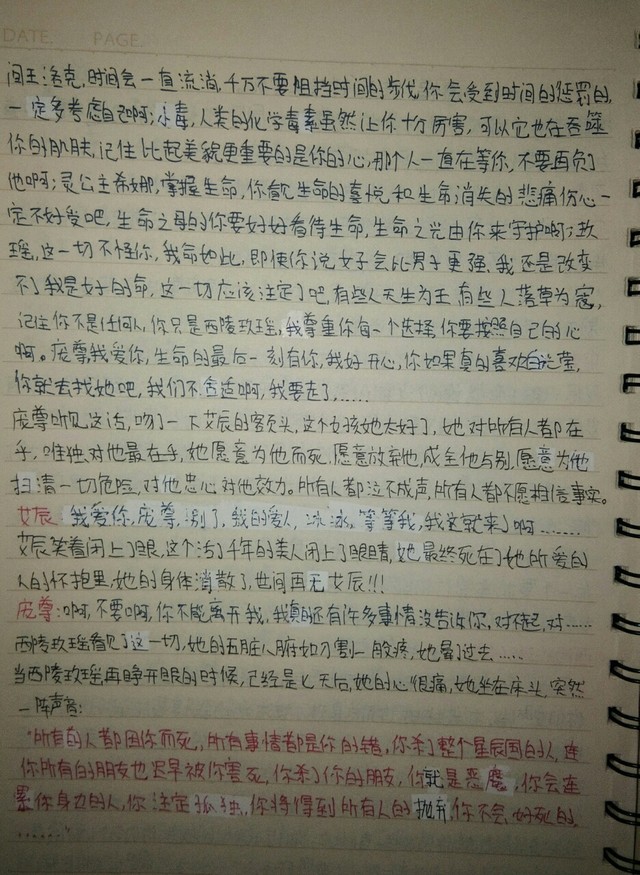 DATE. PAGE.
间王洛克,时间会一直流淌,千万不要阻挡时间的步伐,你会受到时间的惩罚的,
一定多考虑自己啊;小毒,人类的化学毒素虽然让你十分厉害,可以它也在吞噬
你的肌肤,记住比起美貌更重要的是你的心,那个人一直在等你,不要再负了
他啊;灵公主希娜,掌握生命,你看见生命的喜悦和生命消失的悲痛伤心一
定不好受吧,生命之母的你要好好看待生命,生命之光由你来守护啊;玖
瑶,这一切不怪你,我命如此,即使你说女子会比男子更强,我还是改变
不了我是好的命,这一切应该注定了吧,有些人天生为王,有些人落草为寇,
记住你不是任何人,你只是西陵玖瑶,我尊重你每一个选择,你要按照自己的心
啊。庞尊我爱你,生命的最后一刻有你,我好开心,你如果真的喜欢白光莹,
你就去找她吧,我们不合适啊,我要走了,……
庞尊听见这话,吻了一下艾辰的额头,这个女孩她太好了,她对所有人都在
乎,唯独对他最在乎,她愿意为他而死,愿意放弃他,成全他与别,愿意为他
扫清一切危险,对他忠心对他效力。所有人都泣不成声,所有人都不愿相信事实。
艾辰:我爱你,庞尊,别了,我的爱人,冰冰,等等我,我这就来了啊……
艾辰笑着闭上了眼,这个活了千年的美人闭上了眼睛,她最终死在了她所爱的
人的怀抱里,她的身体消散了,世间再无艾辰!!!
庞尊:啊,不要啊,你不能离开我,我真的还有许多事情没告诉你,对不起,对……
西陵玖瑶看见了这一切,她的五脏八腑如刀割一般疼,她晕了过去……
当西陵玖瑶再睁开眼的时候,已经是七天后,她的心很痛,她坐在床头,突然
一阵声音:
"所有的人都因你而死,所有事情都是你的错,你杀了整个星辰国的人,连
你所有的朋友也迟早被你害死,你杀了你的朋友,你就是恶魔,你会连
累你身边的人,你注定孤独,你将得到所有人的抛弃,你不会好死的,
……"